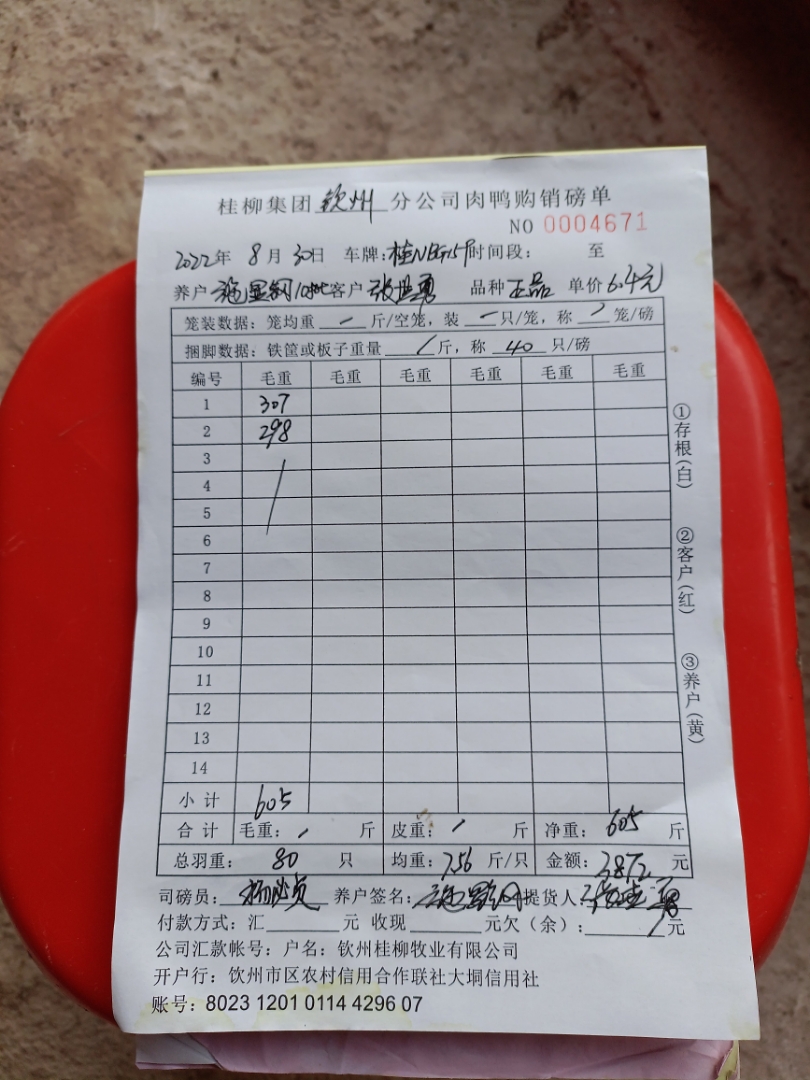 桂柳集团 钦州 分公司肉鸭购销磅单
NO 0004671
2022年 8月 30日 车牌: 时间段: 至
养户 客户 张世勇 品种 正品 单价 6.4元
笼装数据: 笼均重 — 斤/空笼, 装 — 只/笼, 称 笼/磅
捆脚数据: 铁筐或板子重量 / 斤, 称 40 只/磅
编号 毛重 毛重 毛重 毛重 毛重 毛重
1 307
2 298
3
4
5
6
7
8
9
10
11
12
13
14
小计 605
合计 毛重: 斤 皮重: 斤 净重: 605 斤
总羽重: 80 只 均重: 7.56 斤/只 金额: 3872 元
司磅员: 养户签名: 提货人:
付款方式: 汇 元 收现 元欠(余): 元
公司汇款帐号: 户名: 钦州桂柳牧业有限公司
开户行: 钦州市区农村信用合作联社大垌信用社
账号: 8023 1201 0114 4296 07
①存根(白)
②客户(红)
③养户(黄)